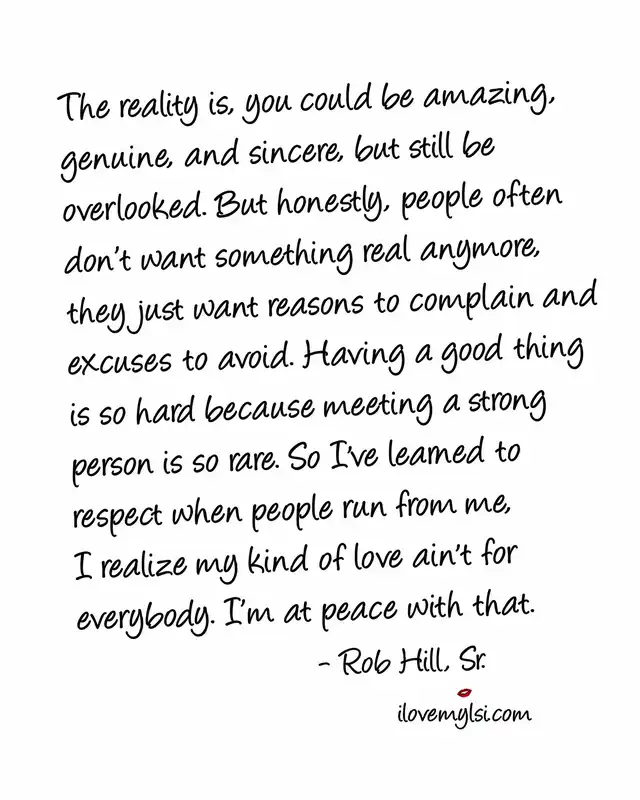 The reality is, you could be amazing,
genuine, and sincere, but still be
overlooked. But honestly, people often
don't want something real anymore,
they just want reasons to complain and
excuses to avoid. Having a good thing
is so hard because meeting a strong
person is so rare. So I've learned to
respect when people run from me,
I realize my kind of love ain't for
everybody. I'm at peace with that.
- Rob Hill, Sr.
ilovemylsi.com